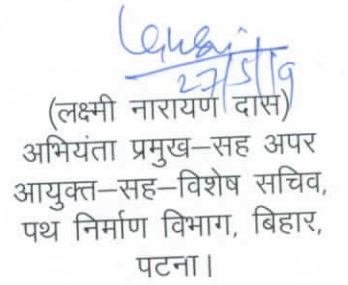 27/5/19
(लक्ष्मी नारायण दास)
अभियंता प्रमुख–सह अपर
आयुक्त–सह–विशेष सचिव,
पथ निर्माण विभाग, बिहार,
पटना।